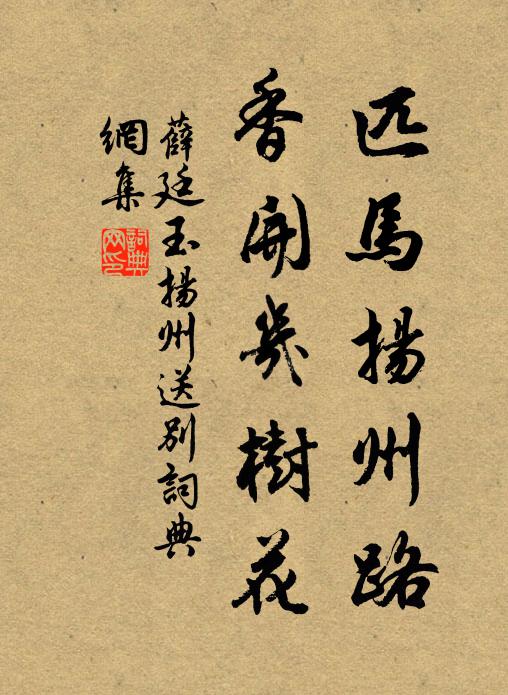 匹馬揚州路
香開幾樹花
薛廷玉揚州送別詞典
網集
詞典
网印